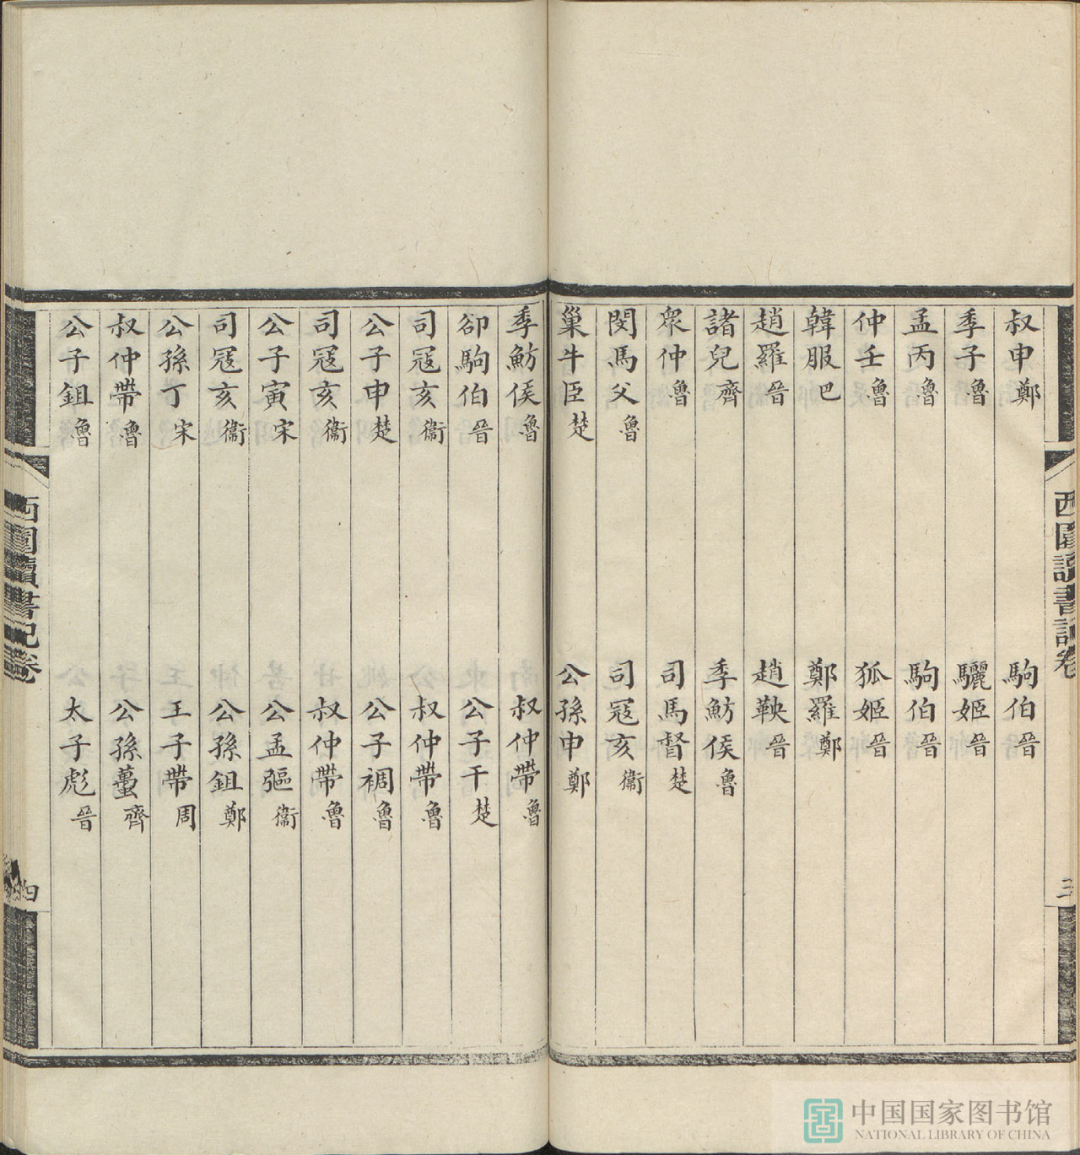 西園讀書記卷
三
叔申鄭 駒伯晉
季子魯 驪姬晉
孟丙魯 駒伯晉
仲壬魯 狐姬晉
韓服巴 鄭羅鄭
趙羅晉 趙鞅晉
諸兒齊 季魴侯魯
眾仲魯 司馬督楚
閔馬父魯 司寇亥衞
巢牛臣楚 公孫申鄭
季魴侯魯 叔仲帶魯
郤駒伯晉 公子干楚
司寇亥衞 叔仲帶魯
公子申楚 公子裯魯
司寇亥衞 叔仲帶魯
公子寅宋 公孟彄衞
司寇亥衞 公孫鉏鄭
公孫丁宋 王子帶周
叔仲帶魯 公孫蠆齊
公子鉏魯 太子彪晉
西園讀書記卷
四
中国国家图书馆
NATIONAL LIBRARY OF CHINA